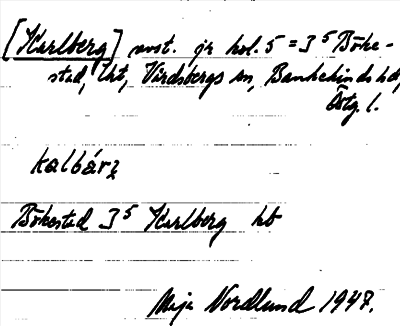 [Karlberg] avst. jr kol. 5 = 3⁵ Böke-
stad, lht, Vårdsbergs sn, Bankekinds hd,
Östg. l.
kalbárʒ
Bökestad 3⁵ Karlberg hb
Maja Nordlund 1947.